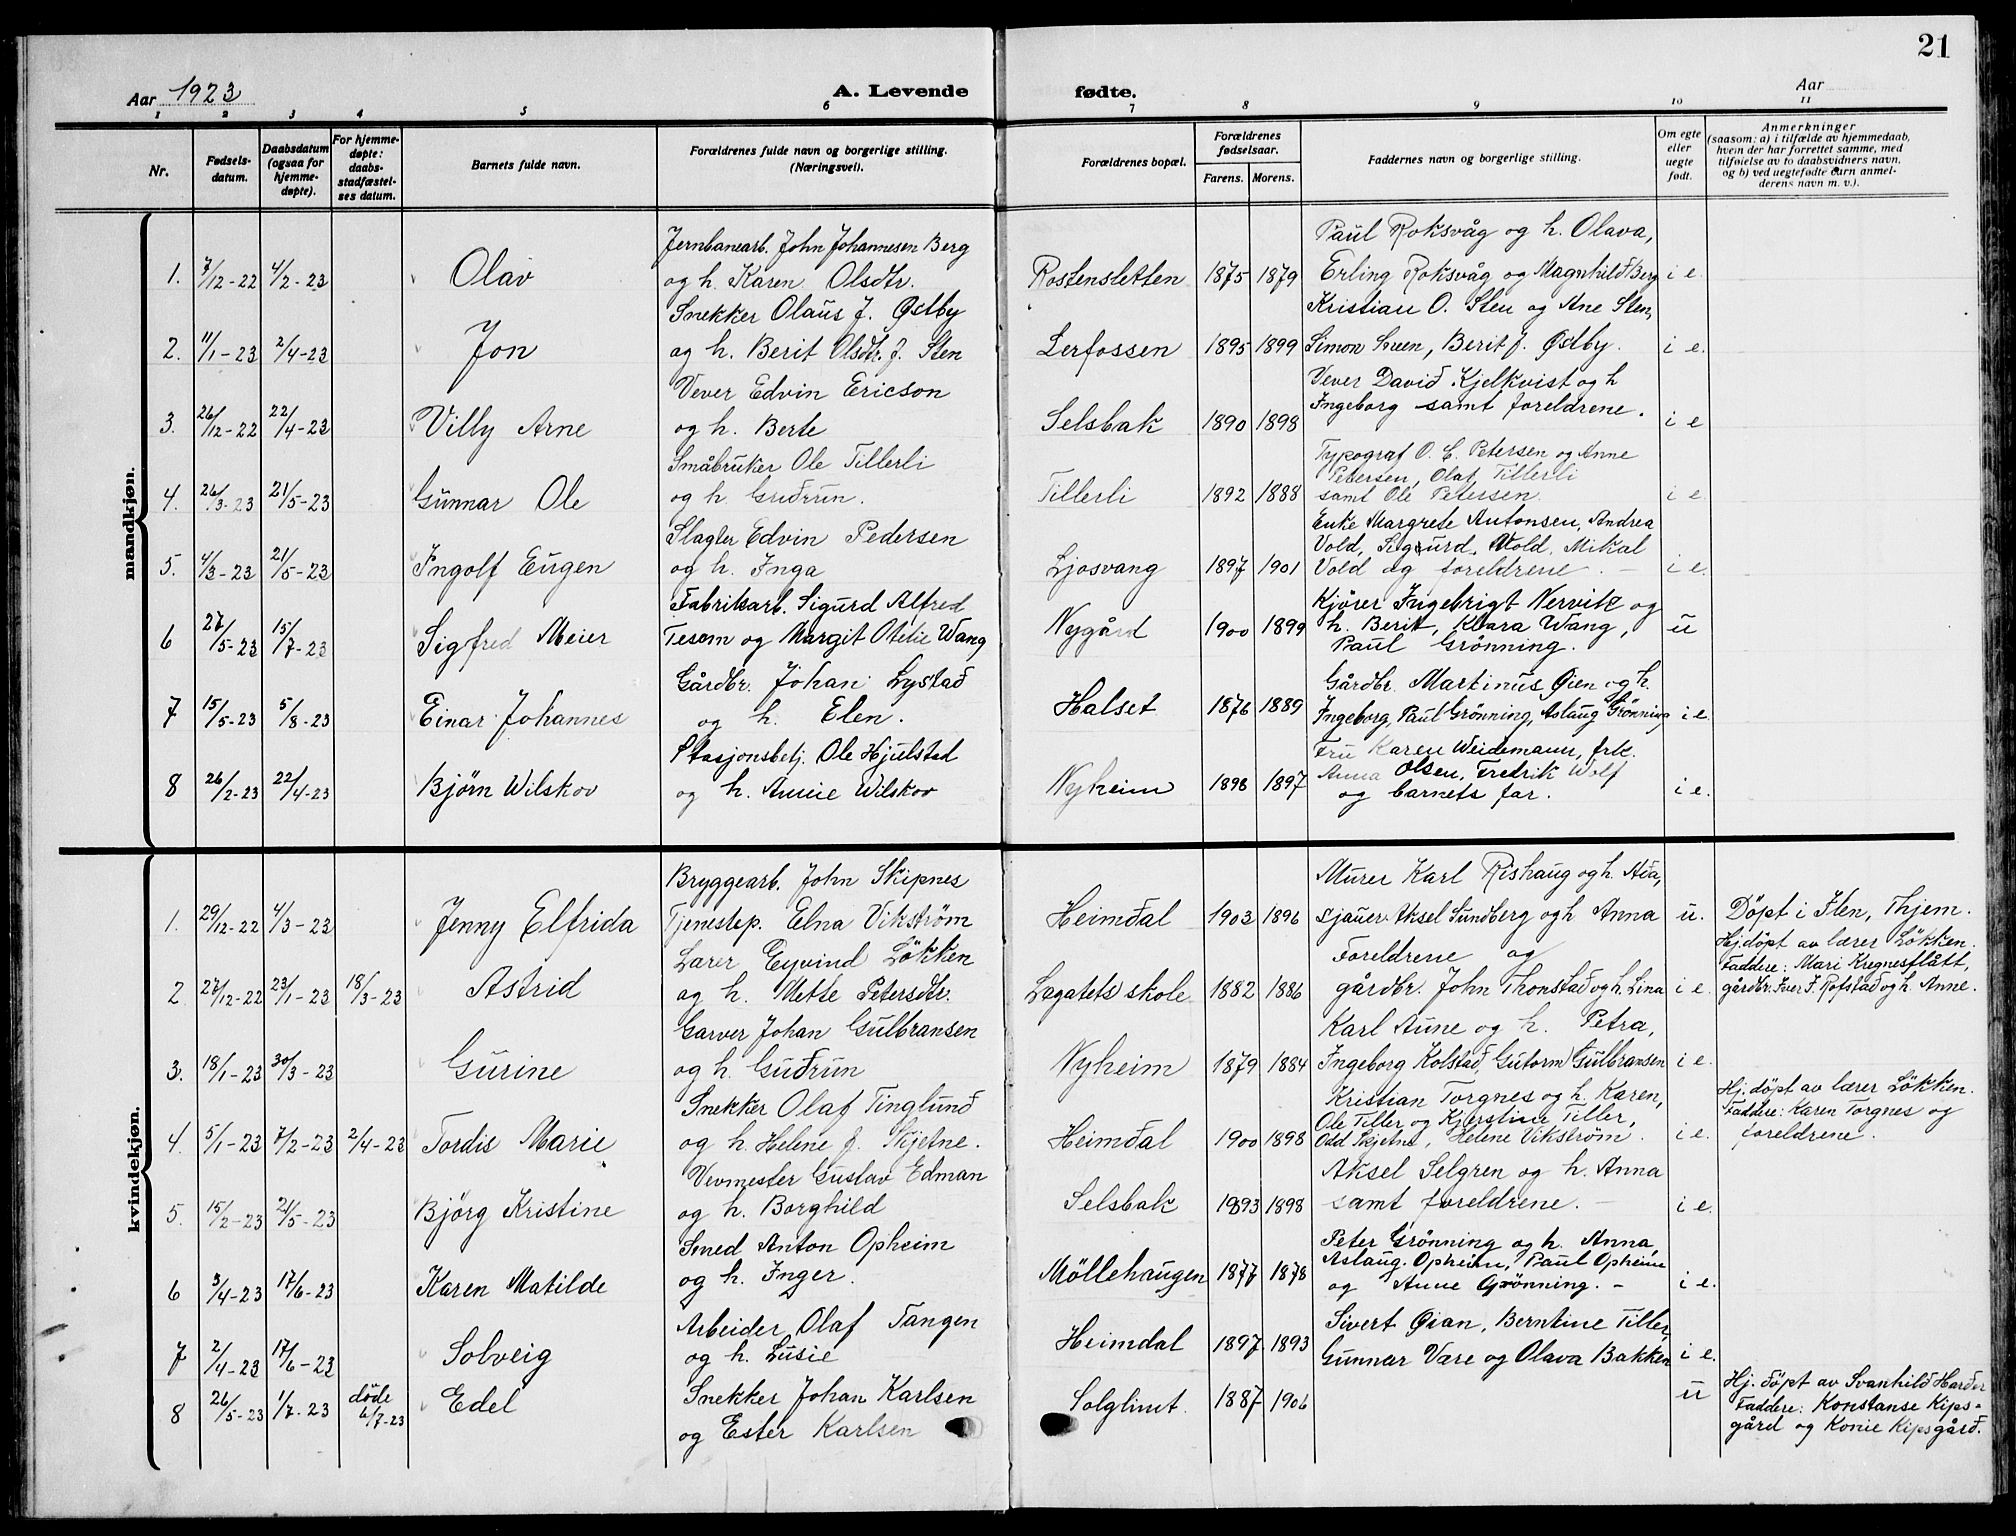 21
Aar 1923
A. Levende fødte.
Aar
1 2 3 4 5 6 7 8 9 10 11
Nr.
Fødsels-
datum.
Daabsdatum
(ogsaa for
hjemme-
døpte).
For hjemme-
døpte:
daabs-
stadfæstel-
ses datum.
Barnets fulde navn.
Forældrenes fulde navn og borgerlige stilling.
(Næringsvei).
Forældrenes bopæl.
Forældrenes
fødselsaar.
Farens. Morens.
Faddernes navn og borgerlige stilling.
Om egte
eller
uegte
født.
Anmerkninger
(saasom: a) i tilfælde av hjemmedaab,
hvein der har forrettet samme, med
tilføielse av to daabsvidners navn,
og b) ved uegtefødte barn anmel-
derens navn m. v.).
mandkjøn.
Jernbanearb. John Johannesen Berg
Paul Roksvåg og h. Olava,
1. 7/12-22 4/2-23 Olav og h. Karen Olsdtr. Rostensletten 1875 1879 Erling Roksvåg og Magnhild Berg i e.
Snekker Olaus J. Østby
Kristian O. Sten og Ane Sten,
2. 11/1-23 2/4-23 Jon og h. Berit Olsdtr. f. Sten Lerfossen 1895 1899 Simon Sveen, Berit J. Østby. i e.
Vever Edvin Ericson
Vever David Kjelkvist og h
3. 26/12-22 22/4-23 Villy Arne og h. Berte Selsbak 1890 1898 Ingeborg samt foreldrene. i e
Småbruker Ole Tillerli
Typograf O. C. Petersen og Anne
Petersen, Olaf Tillerli
4. 26/3-23 21/5-23 Gunnar Ole og h. Gudrun. Tillerli 1892 1888 samt Ole Petersen. i e.
Slagter Edvin Pedersen
Enke Margrete Antonsen, Andrea
Vold, Sigurd Vold, Mikal
5. 4/3-23 21/5-23 Ingolf Eugen og h. Inga Ljosvang 1897 1901 Vold og foreldrene. - i e.
Fabrikarb. Sigurd Alfred
Kjører Ingebrigt Nervik og
6 27/5-23 15/7-23 Sigfred Meier Tesem og Margit Otelie Wang Nygård 1900 1899 h. Berit, Klara Wang, u
Paul Grönning.
Gårdbr. Johan Lystad
Gårdbr. Martinus Øien og h.
7 15/5-23 5/8-23 Einar Johannes og h. Elen. Halset 1876 1889 Ingeborg, Paul Grönning, Aslaug Grönning i e.
Stasjonsbetj. Ole Hjulstad
Fru Karen Weidemann, frk.
8 26/2-23 22/4-23 Bjørn Wilskov og h. Annie Wilskov Nyheim 1898 1897 Anna Olsen, Fredrik Wolf i e.
og barnets far.
kvindekjøn.
Bryggearb. John Skipnes
Murer Karl Rishaug og h. Aða,
1. 29/12-22 4/3-23 Jenny Elfrida Tjenestep. Elna Vikström Heimdal 1903 1896 sjauer Aksel Sundberg og h Anna u. Döpt i Ilen, Thjem.
Lærer Eyvind Lökken
Foreldrene og
Hj.döpt av lærer Lökken.
Faddere: Mari Kregnesflått,
2. 27/12-22 23/1-23 18/3-23 Astrid og h. Mette Petersdtr. Legatets skole 1882 1886 gårdbr. John Thonstad og h. Lina i e. gårdbr. Iver J. Rofstad og h. Anne.
Garver Johan Gulbransen
Karl Aune og h. Petra,
3. 18/1-23 30/3-23 Gurine og h. Gudrun Nyheim 1879 1884 Ingeborg Kolstad, Gutorm Gulbransen i e.
Snekker Olaf Tinglund
Kristian Torgnes og h. Karen,
Ole Tiller og Kjerstine Tiller,
Hj. döpt av lærer Lökken.
Faddere: Karen Torgnes og
4. 5/1-23 7/2-23 2/4-23 Tordis Marie og h. Helene f. Skjetne. Heimdal 1900 1898 Odd Skjetne, Helene Vikström. i e. foreldrene.
Vevmester Gustav Edman
Aksel Selgren og h. Anna
5. 15/2-23 21/5-23 Björg Kristine og h. Borghild Selsbak 1893 1898 samt foreldrene. - i e.
Smed Anton Opheim
Peter Grönning og h. Anna,
Aslaug Opheim, Paul Opheim
6 3/4-23 17/6-23 Karen Matilde og h. Inger. Möllehaugen 1877 1878 og Anne Grönning. - i e.
Arbeider Olaf Tangen
Sivert Øian, Berntine Tiller,
7 2/4-23 17/6-23 Solveig og h. Lusie Heimdal 1897 1893 Gunnar Være og Olava Bakken i e.
Snekker Johan Karlsen
Hj. döpt av Svanhild Harder
Faddere: Konstanse Kips-
8 26/5-23 1/7-23 döde 6/7-23 Edel og Ester Karlsen Solglimt. 1887 1906 u gård og Konie Kipsgård.